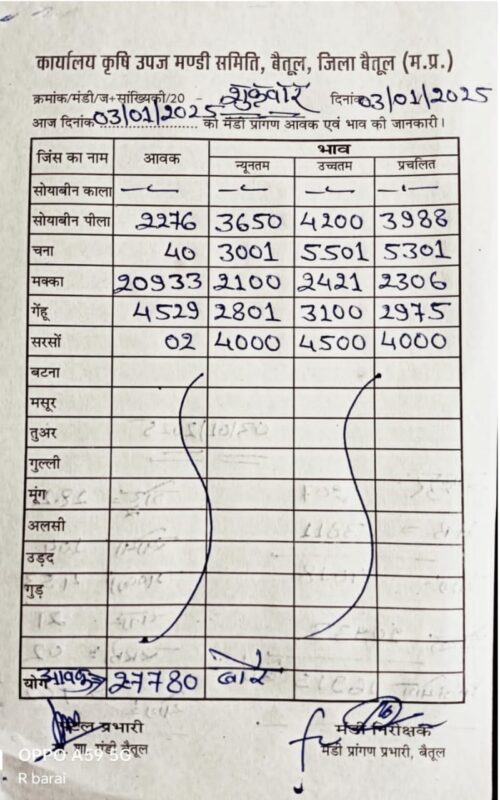 कार्यालय कृषि उपज मण्डी समिति, बैतूल, जिला बैतूल (म.प्र.)
क्रमांक/मंडी/ज+सांख्यिकी/20 - शुक्रवार दिनांक 03/01/2025
आज दिनांक 03/01/2025 को मंडी प्रांगण आवक एवं भाव की जानकारी।
जिंस का नाम आवक भाव
न्यूनतम उच्चतम प्रचलित
सोयाबीन काला — — — —
सोयाबीन पीला 2276 3650 4200 3988
चना 40 3001 5501 5301
मक्का 20933 2100 2421 2306
गेंहू 4529 2801 3100 2975
सरसों 02 4000 4500 4000
बटना
मसूर
तुअर
गुल्ली
मूंग
अलसी
उड़द
गुड़
योग आवक → 27780 बोरे
प्रभारी मंडी निरीक्षक
मंडी बैतूल मंडी प्रांगण प्रभारी, बैतूल
OPPO A59 5G
R barai